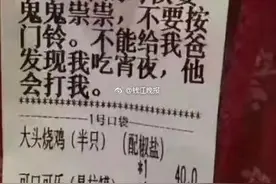 鬼鬼祟祟，不要按
门铃。不能给我爸
发现我吃宵夜，他
会打我。
@钱江晚报
1号口袋
大头烧鸡（半只）（配椒盐）
*1 40.0